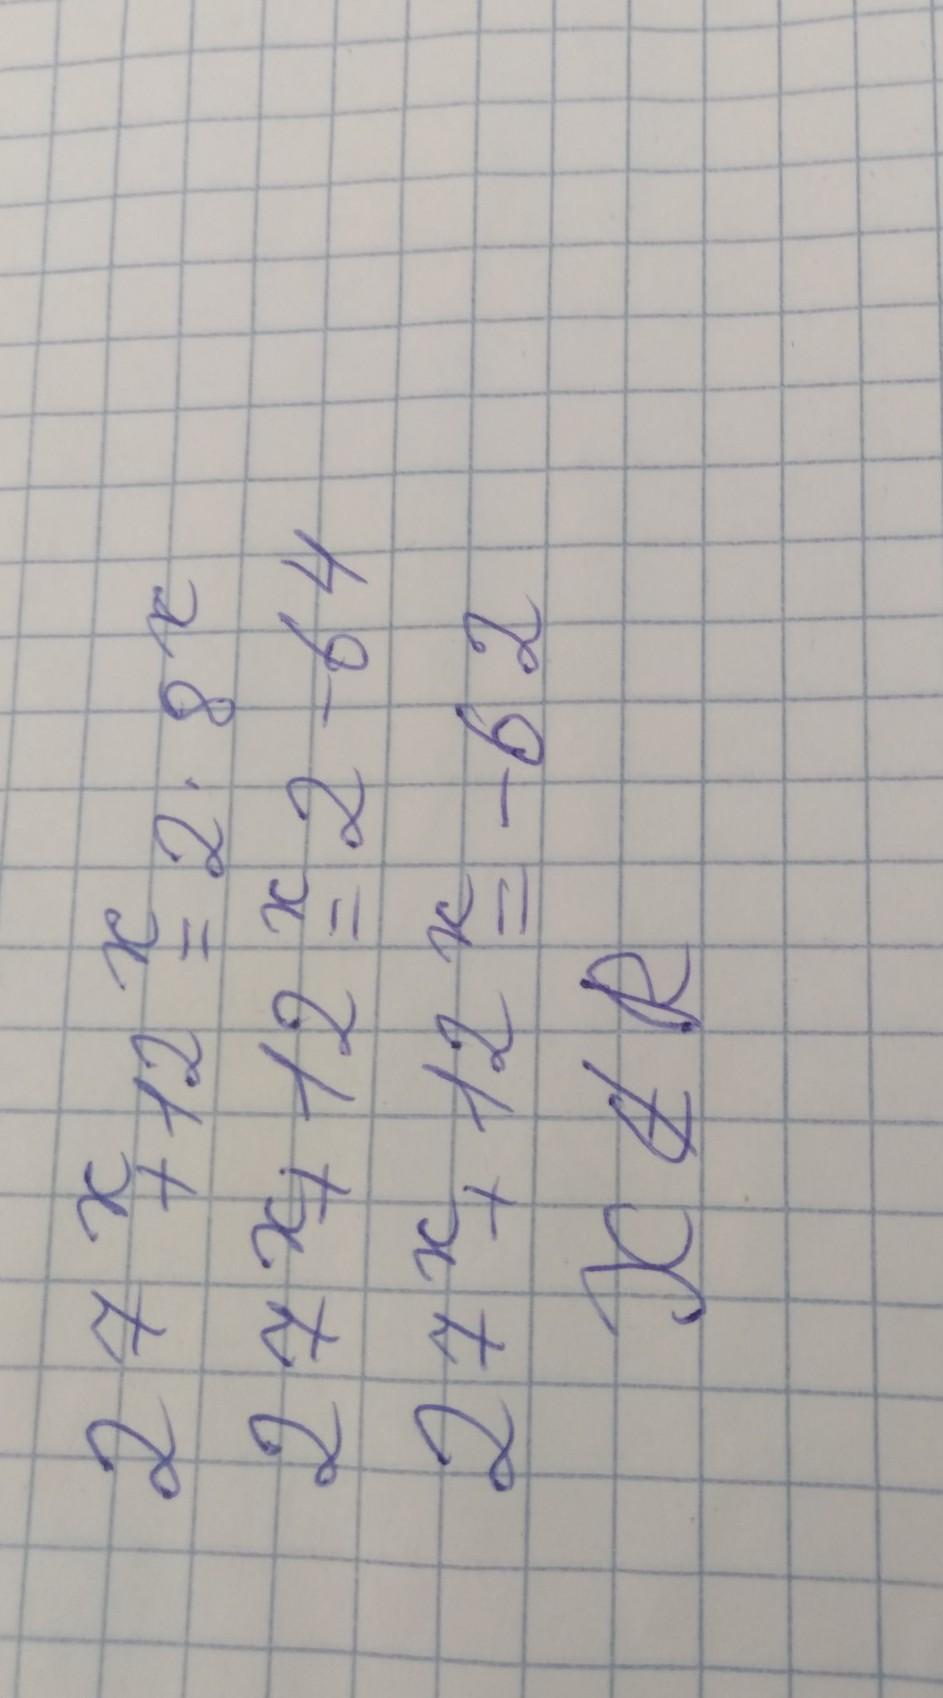 27ˣ + 12ˣ = 2 · 8ˣ
27ˣ + 12ˣ = 2 - 64
27ˣ + 12ˣ = -62
x ∉ R